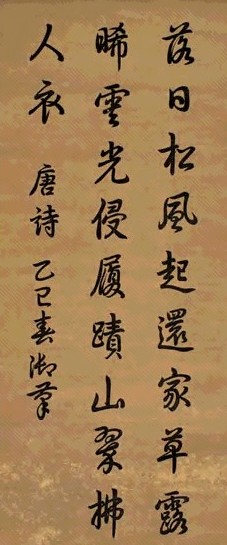 落日松風起還家草露
晞雲光侵履蹟山翠拂
人衣 唐詩 乙巳春御筆